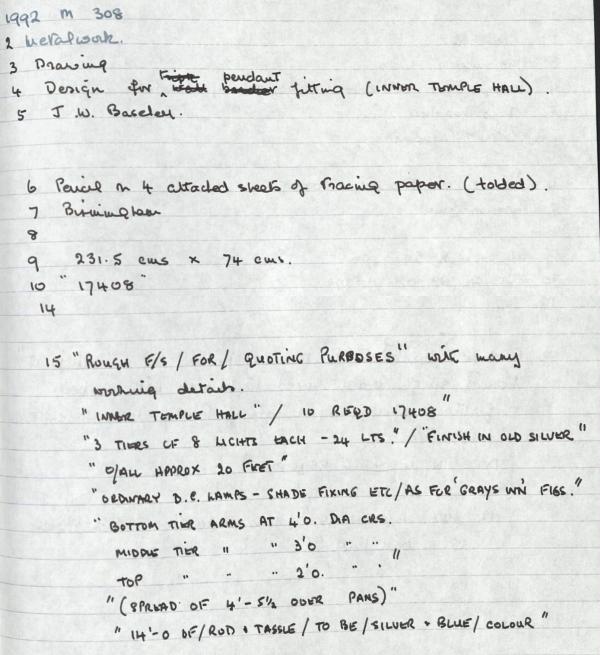 1992 M 308
2 Metalwork.
3 Drawing
4 Design for pendant fitting (INNER TEMPLE HALL).
5 J.W. Baseley.
6 Pencil on 4 attached sheets of tracing paper. (folded).
7 Birmingham
8
9 231.5 cms x 74 cms.
10 "17408"
14
15 "ROUGH F/S / FOR / QUOTING PURPOSES" with many
working details.
"INNER TEMPLE HALL" / 10 REQD 17408"
"3 TIERS OF 8 LIGHTS EACH - 24 LTS." / "FINISH IN OLD SILVER"
"O/ALL APPROX 20 FEET"
"ORDINARY B.C. LAMPS - SHADE FIXING ETC / AS FOR GRAYS INN FIGS."
"BOTTOM TIER ARMS AT 4'0. DIA CRS.
MIDDLE TIER " " 3'0 " "
TOP " " " 2'0. " " "
"(SPREAD OF 4'-5½ OVER PANS)"
"14'-0 OF / ROD + TASSLE / TO BE / SILVER + BLUE / COLOUR"